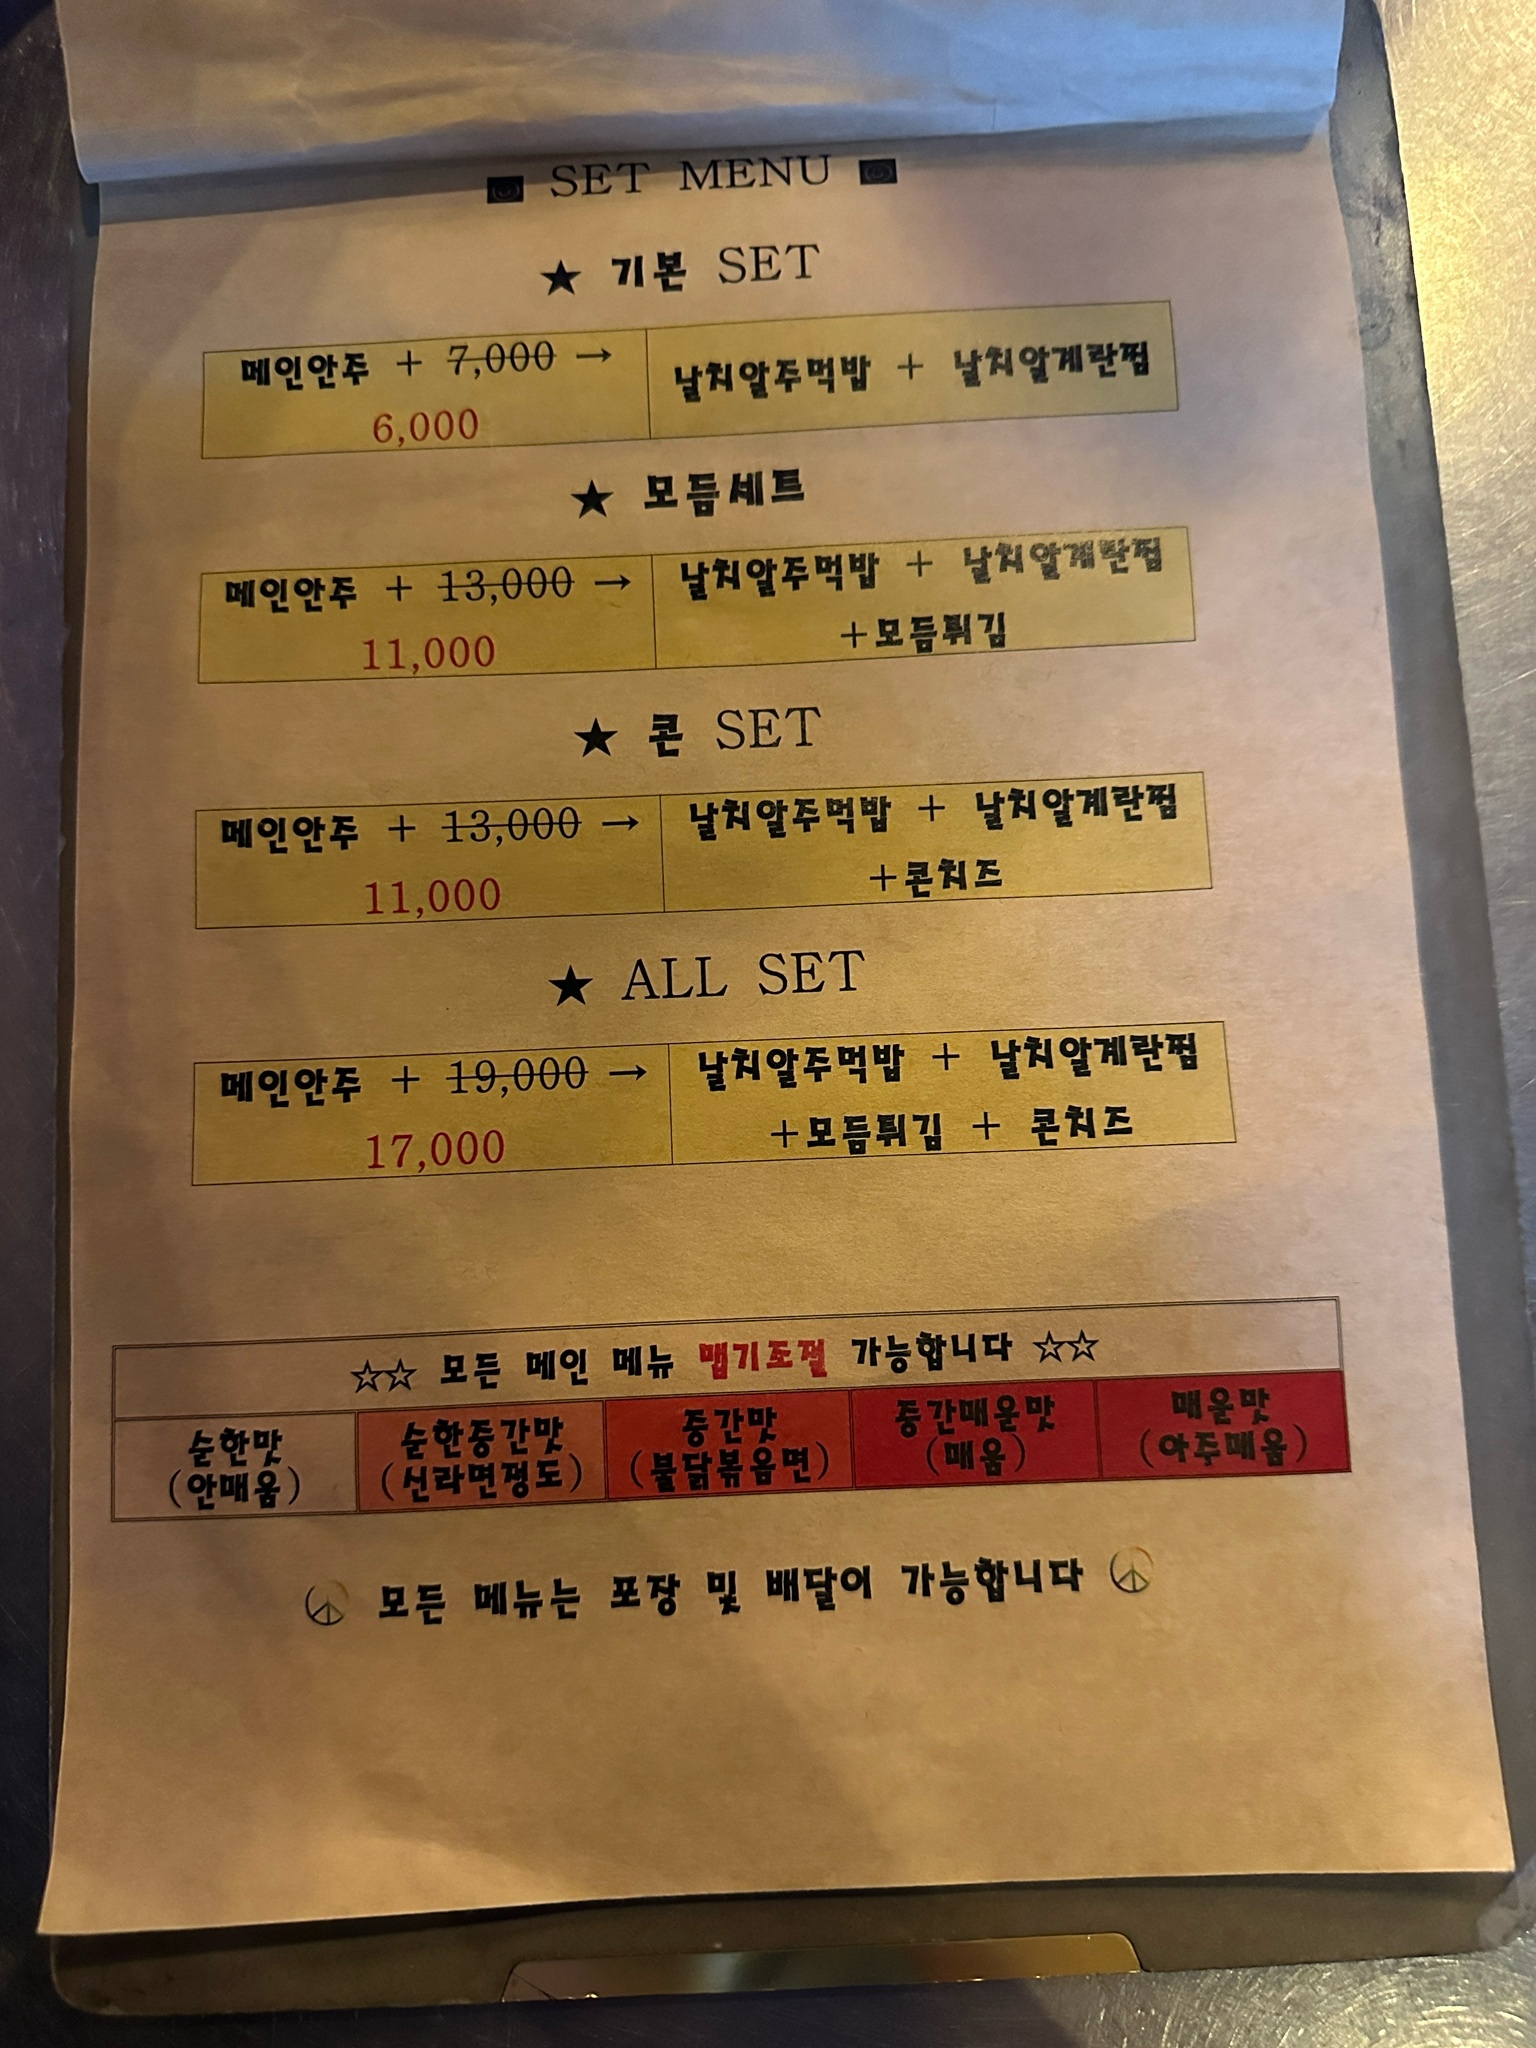 SET MENU
★ 기본 SET
메인안주 + 7,000 →
6,000
날치알주먹밥 + 날치알계란찜
★ 모듬세트
메인안주 + 13,000 →
11,000
날치알주먹밥 + 날치알계란찜
+모듬튀김
★ 콘 SET
메인안주 + 13,000 →
11,000
날치알주먹밥 + 날치알계란찜
+콘치즈
★ ALL SET
메인안주 + 19,000 →
17,000
날치알주먹밥 + 날치알계란찜
+모듬튀김 + 콘치즈
☆☆ 모든 메인 메뉴 맵기조절 가능합니다 ☆☆
순한맛
(안매움)
순한중간맛
(신라면정도)
중간맛
(불닭볶음면)
중간매운맛
(매움)
매운맛
(아주매움)
모든 메뉴는 포장 및 배달이 가능합니다